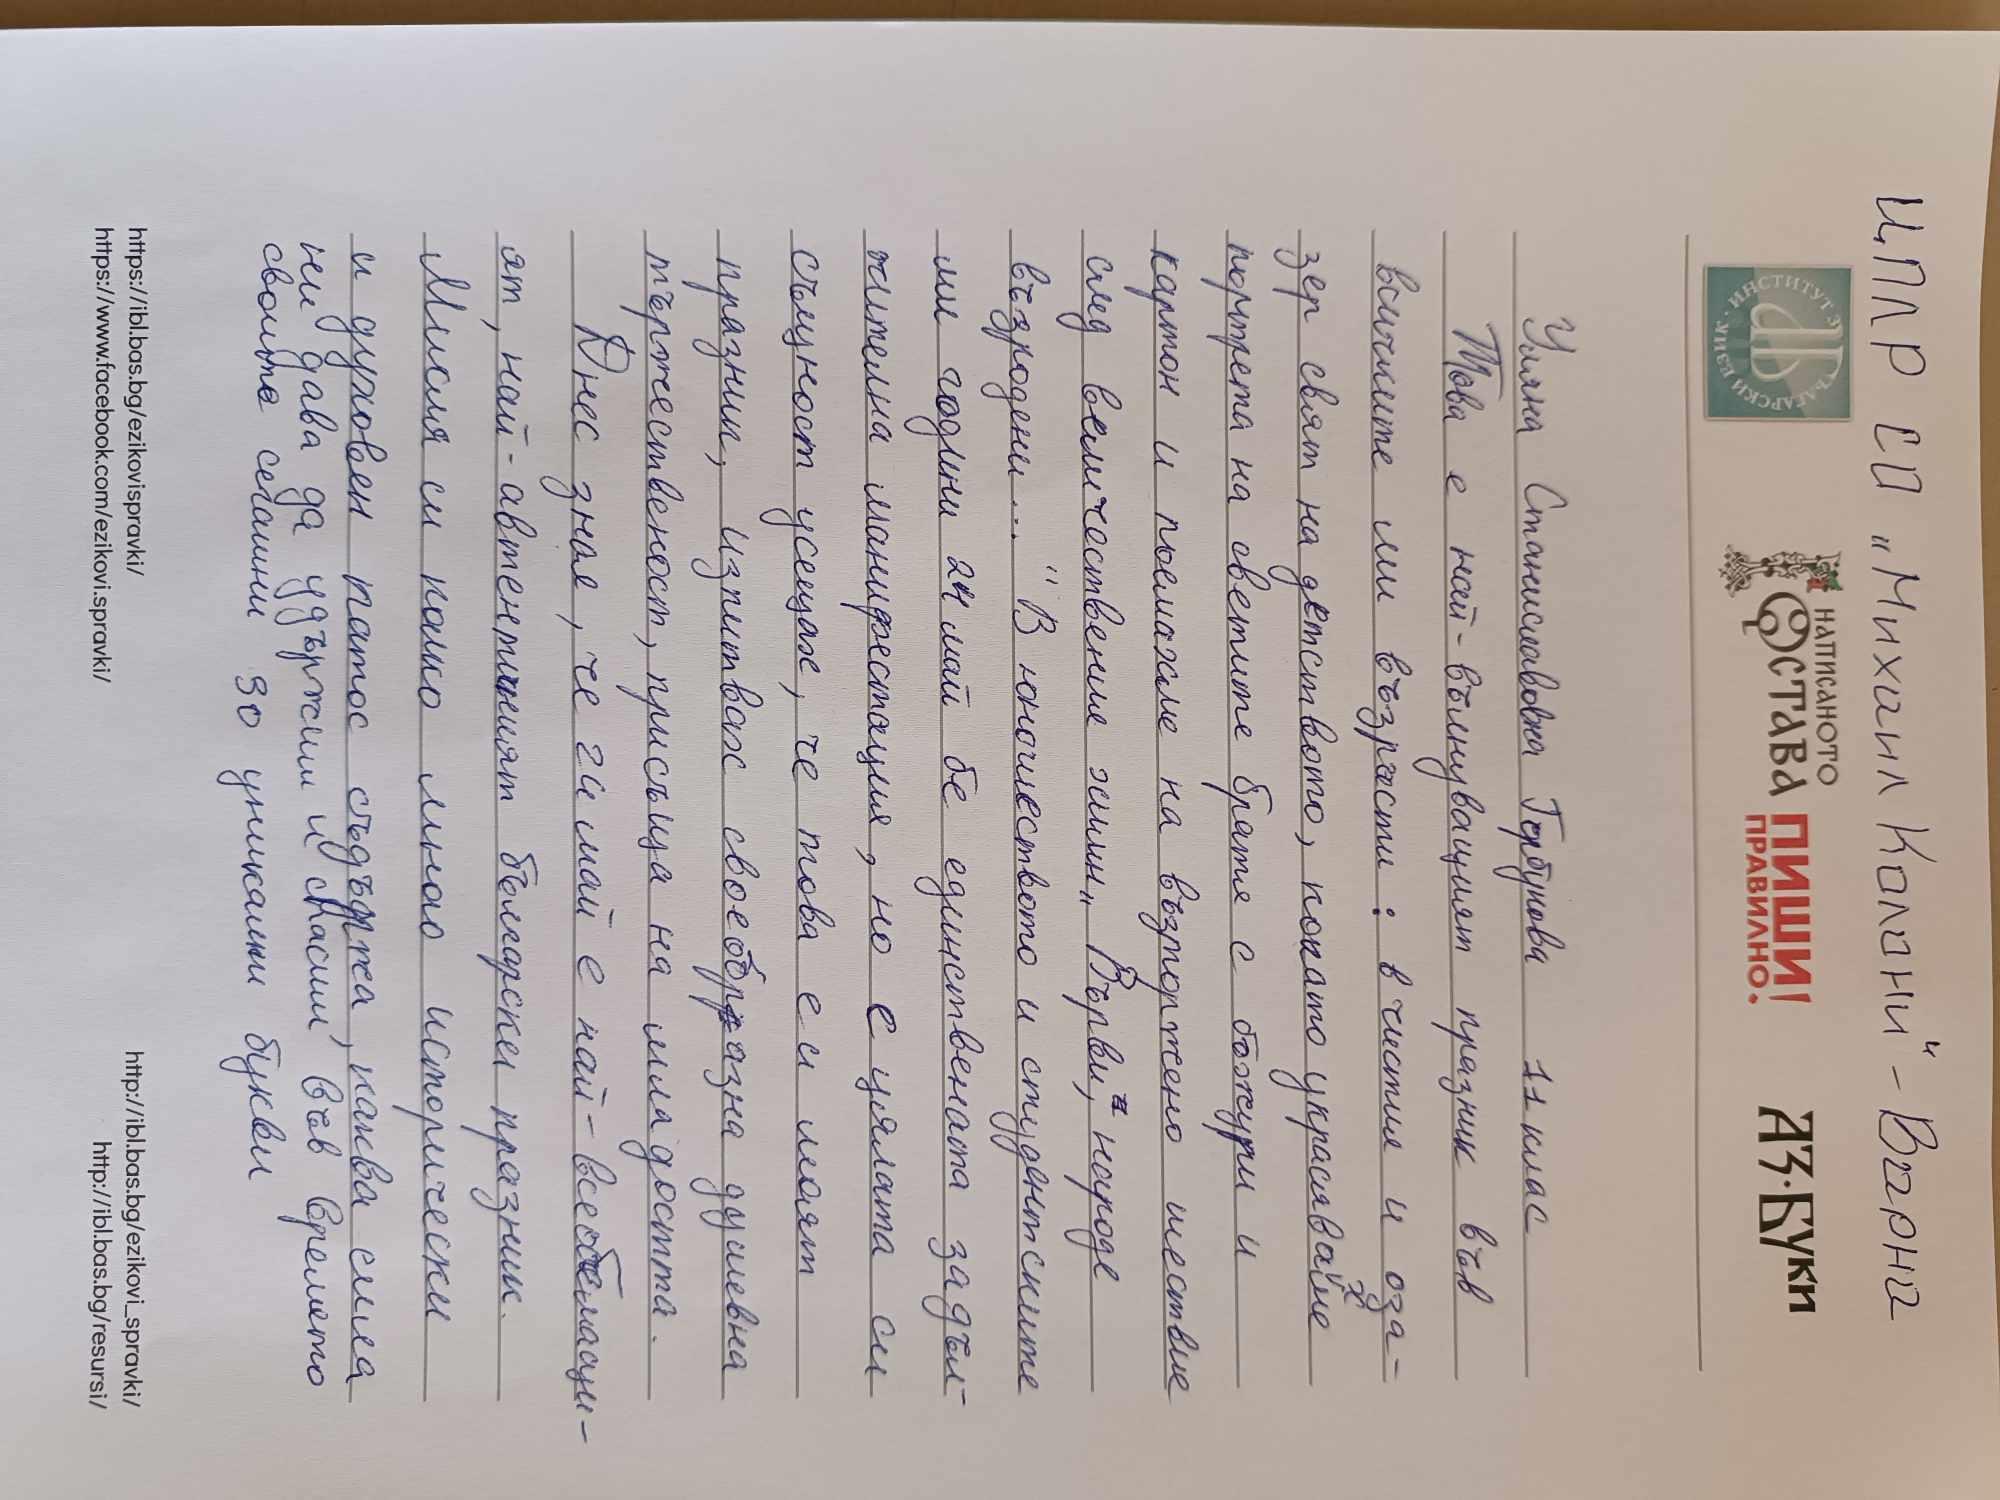 ЦПЛР СП „Михаил Колони" – Варна
ИНСТИТУТ ЗА БЪЛГАРСКИ ЕЗИК
НАПИСАНОТО ОСТАВА ПИШИ ПРАВИЛНО! АЗ·БУКИ
Уляна Станиславовна 11 клас
Това е най-вълнуващият празник във
всичките ми възрасти: в чистия и оза-
зер свят на детството, когато украсявахме
портрета на светите братя с божури и
картон и поемахме на възторжено шествие
след величествения химн „Върви, народе
възродени..." В юношеството и студентските
ми години 24 май бе единствената задъл-
жителна манифестация, но с цялата си
същност усещах, че това е и моят
празник, изпитвах своеобразна душевна
тържественост, присъща на младостта.
Днес зная, че 24 май е най-всеобемащи-
ят, най-автентичният български празник.
Мисля си колко много исторически
и духовен патос съдържа, каква сила
ни дава да удържим и спасим във времето
своите сегашни 30 уникални букви
https://ibl.bas.bg/ezikovispravki/ http://ibl.bas.bg/ezikovi_spravki/
https://www.facebook.com/ezikovi.spravki/ http://ibl.bas.bg/resursi/